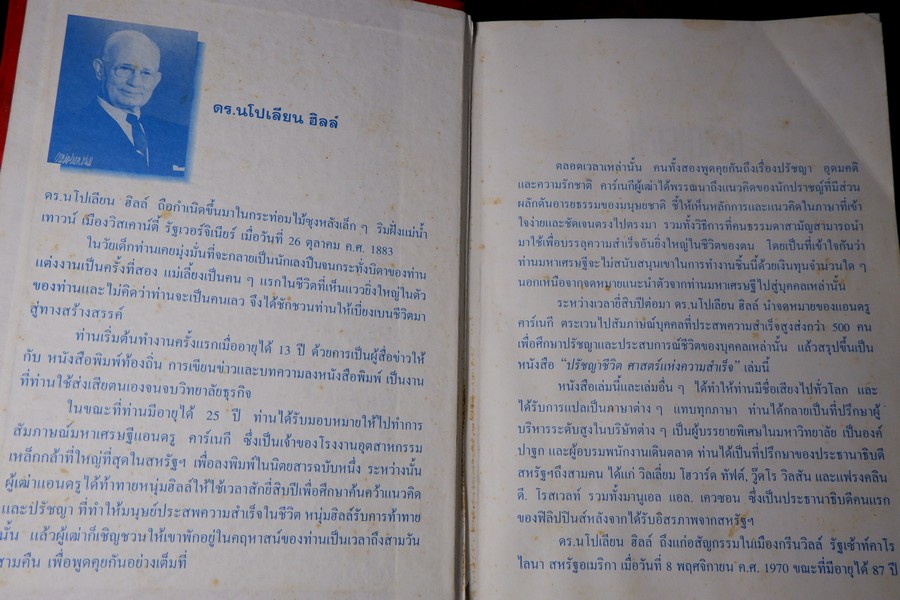 ดร.นโปเลียน ฮิลล์
ดร.นโปเลียน ฮิลล์ ถือกำเนิดขึ้นมาในกระท่อมไม้ซุงหลังเล็ก ๆ ริมฝั่งแม่น้ำ
เทาวน์ เมืองวิสเคาน์ตี้ รัฐเวอร์จิเนียร์ เมื่อวันที่ 26 ตุลาคม ค.ศ. 1883
ในวัยเด็กท่านเคยมุ่งมั่นที่จะกลายเป็นนักเลงปืนจนกระทั่งบิดาของท่าน
แต่งงานเป็นครั้งที่สอง แม่เลี้ยงเป็นคน ๆ แรกในชีวิตที่เห็นแววยิ่งใหญ่ในตัว
ของท่านและไม่คิดว่าท่านจะเป็นคนเลว จึงได้ชักชวนท่านให้เบี่ยงเบนชีวิตมา
สู่ทางสร้างสรรค์
ท่านเริ่มต้นทำงานครั้งแรกเมื่ออายุได้ 13 ปี ด้วยการเป็นผู้สื่อข่าวให้
กับ หนังสือพิมพ์ท้องถิ่น การเขียนข่าวและบทความลงหนังสือพิมพ์ เป็นงาน
ที่ท่านใช้ส่งเสียตนเองจนจบวิทยาลัยธุรกิจ
ในขณะที่ท่านมีอายุได้ 25 ปี ท่านได้รับมอบหมายให้ไปทำการ
สัมภาษณ์มหาเศรษฐีแอนดรู คาร์เนกี ซึ่งเป็นเจ้าของโรงงานอุตสาหกรรม
เหล็กกล้าที่ใหญ่ที่สุดในสหรัฐฯ เพื่อลงพิมพ์ในนิตยสารฉบับหนึ่ง ระหว่างนั้น
ผู้เฒ่าแอนดรูได้ท้าทายหนุ่มฮิลล์ให้ใช้เวลาสักยี่สิบปีเพื่อศึกษาค้นคว้าแนวคิด
และปรัชญา ที่ทำให้มนุษย์ประสพความสำเร็จในชีวิต หนุ่มฮิลล์รับการท้าทาย
นั้น แล้วผู้เฒ่าก็เชิญชวนให้เขาพักอยู่ในคฤหาสน์ของท่านเป็นเวลาถึงสามวัน
สามคืน เพื่อพูดคุยกันอย่างเต็มที่
ตลอดเวลาเหล่านั้น คนทั้งสองพูดคุยกันถึงเรื่องปรัชญา อุดมคติ
และความรักชาติ คาร์เนกีผู้เฒ่าได้พรรณนาถึงแนวคิดของนักปราชญ์ที่มีส่วน
ผลักดันอารยธรรมของมนุษยชาติ ชี้ให้เห็นหลักการและแนวคิดในภาษาที่เข้า
ใจง่ายและชัดเจนตรงไปตรงมา รวมทั้งวิธีการที่คนธรรมดาสามัญสามารถนำ
มาใช้เพื่อบรรลุความสำเร็จอันยิ่งใหญ่ในชีวิตของตน โดยเป็นที่เข้าใจกันว่า
ท่านมหาเศรษฐีจะไม่สนับสนุนเขาในการทำงานชิ้นนี้ด้วยเงินทุนจำนวนใด ๆ
นอกเหนือจากจดหมายแนะนำตัวจากท่านมหาเศรษฐีไปสู่บุคคลเหล่านั้น
ระหว่างเวลายี่สิบปีต่อมา ดร.นโปเลียน ฮิลล์ นำจดหมายของแอนดรู
คาร์เนกี ตระเวนไปสัมภาษณ์บุคคลที่ประสพความสำเร็จสูงส่งกว่า 500 คน
เพื่อศึกษาปรัชญาและประสบการณ์ชีวิตของบุคคลเหล่านั้น แล้วสรุปขึ้นเป็น
หนังสือ "ปรัชญาชีวิต ศาสตร์แห่งความสำเร็จ" เล่มนี้
หนังสือเล่มนี้และเล่มอื่น ๆ ได้ทำให้ท่านมีชื่อเสียงไปทั่วโลก และ
ได้รับการแปลเป็นภาษาต่าง ๆ แทบทุกภาษา ท่านได้กลายเป็นที่ปรึกษาผู้
บริหารระดับสูงในบริษัทต่าง ๆ เป็นผู้บรรยายพิเศษในมหาวิทยาลัย เป็นองค์
ปาฐก และผู้อบรมพนักงานเดินตลาด ท่านได้เป็นที่ปรึกษาของประธานาธิบดี
สหรัฐฯถึงสามคน ได้แก่ วิลเลี่ยม โฮวาร์ด ทัฟต์, วู๊ดโร วิลสัน และแฟรงคลิน
ดี. โรสเวลท์ รวมทั้งมานูเอล แอล. เควซอน ซึ่งเป็นประธานาธิบดีคนแรก
ของฟิลิปปินส์หลังจากได้รับอิสรภาพจากสหรัฐฯ
ดร.นโปเลียน ฮิลล์ ถึงแก่อสัญกรรมในเมืองกรีนวิลล์ รัฐเซ้าท์คาโร
ไลนา สหรัฐอเมริกา เมื่อวันที่ 8 พฤศจิกายน ค.ศ. 1970 ขณะที่มีอายุได้ 87 ปี